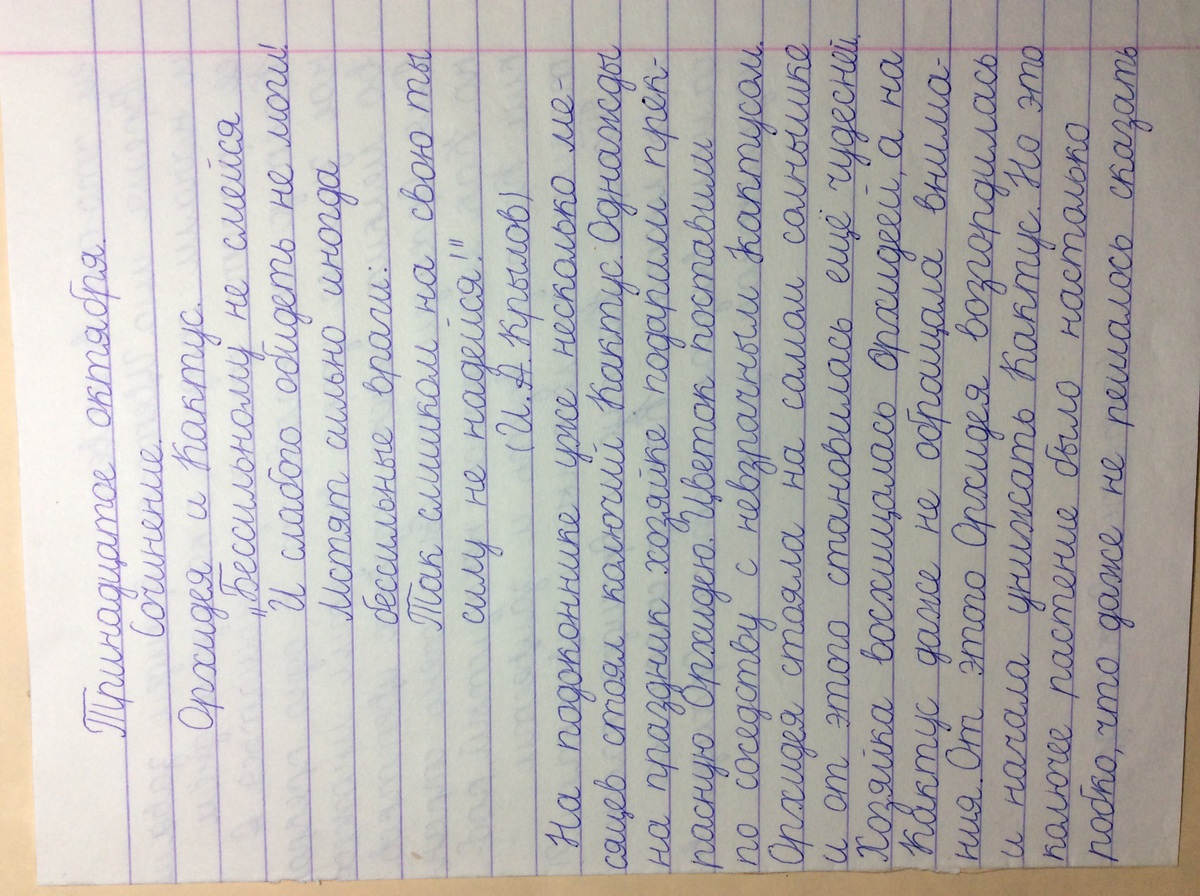 Тринадцатое октября.
Сочинение.
Орхидея и Кактус.
"Бессильному не смейся
И слабого обидеть не моги!
Мстят сильно иногда
бессильные враги:
Так слишком на свою ты
силу не надейся!"
(И. А. Крылов)
На подоконнике уже несколько ме-
сяцев стоял колючий Кактус. Однажды
на праздник хозяйке подарили прек-
расную Орхидею. Цветок поставили
по соседству с невзрачным Кактусом.
Орхидея стояла на самом солнышке
и от этого становилась ещё чудесней.
Хозяйка восхищалась орхидеей, а на
Кактус даже не обращала внима-
ния. От этого Орхидея возгордилась
и начала унижать Кактус. Но это
колючее растение было настолько
робко, что даже не решалось сказать